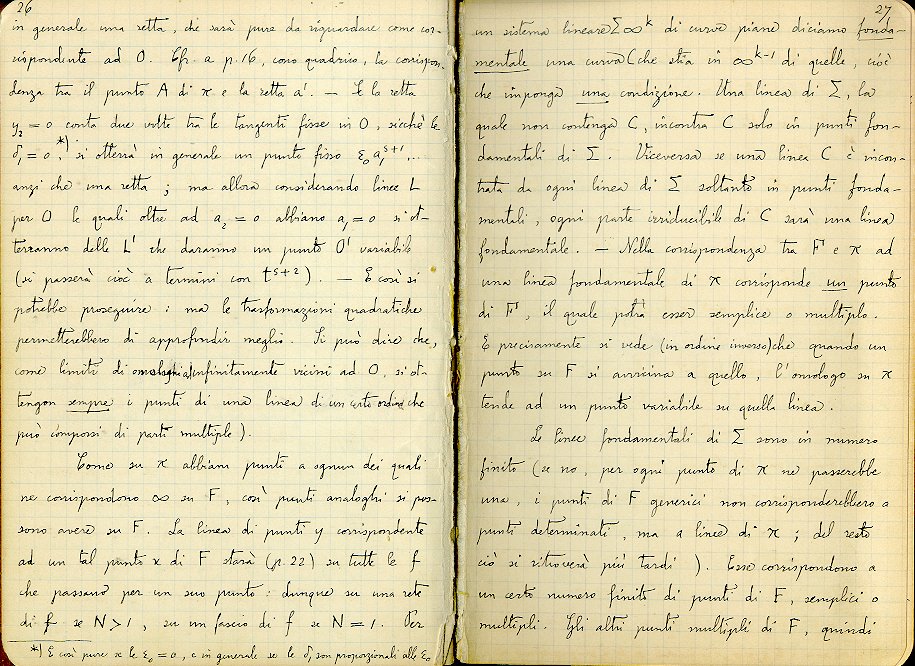 26
in generale una retta, che sarà pure da riguardare come cor-
rispondente ad O. Cfr. a p. 16, cono quadrico, la corrispon-
denza tra il punto A di π e la retta a'. — Se la retta
y₂ = 0 conta due volte tra le tangenti fisse in O, sicchè le
δ₁ = 0 *), si otterrà in generale un punto fisso ε₀ a₁ˢ⁺¹, ...
anzi che una retta ; ma allora considerando linee L
per O le quali oltre ad a₂ = 0 abbiano a₁ = 0 si ot-
terranno delle L' che daranno un punto O' variabile
(si passerà cioè a termini con tˢ⁺²). — E così si
potrebbe proseguire : ma le trasformazioni quadratiche
permetterebbero di approfondir meglio. Si può dire che,
come limiti di omologhi a infinitamente vicini ad O, si ot-
tengon sempre i punti di una linea di un certo ordine che
può comporsi di parti multiple ).
Come su π abbiam punti a ognun dei quali
ne corrispondono ∞ su F, così punti analoghi si pos-
sono avere su F. La linea di punti y corrispondente
ad un tal punto x di F starà (p. 22) su tutte le f
che passano per un suo punto : dunque su una rete
di f se N > 1, su un fascio di f se N = 1. Per
*) E così pure se le ε₀ = 0, e in generale se le δ₁ son proporzionali alle ε₀
27
un sistema lineare Σ ∞ᵏ di curve piane diciamo fonda-
mentale una curva C che stia in ∞ᵏ⁻¹ di quelle, cioè
che imponga una condizione. Una linea di Σ, la
quale non contenga C, incontra C solo in punti fon-
damentali di Σ. Viceversa se una linea C è incon-
trata da ogni linea di Σ soltanto in punti fonda-
mentali, ogni parte irriducibile di C sarà una linea
fondamentale. — Nella corrispondenza tra F e π ad
una linea fondamentale di π corrisponde un punto
di F, il quale potrà esser semplice o multiplo.
E precisamente si vede (in ordine inverso) che quando un
punto su F si avvicina a quello, l'omologo su π
tende ad un punto variabile su quella linea.
Le linee fondamentali di Σ sono in numero
finito (se no, per ogni punto di π ne passerebbe
una, i punti di F generici non corrisponderebbero a
punti determinati, ma a linee di π ; del resto
ciò si ritroverà più tardi ). Esse corrispondono a
un certo numero finito di punti di F, semplici o
multipli. Gli altri punti multipli di F, quindi